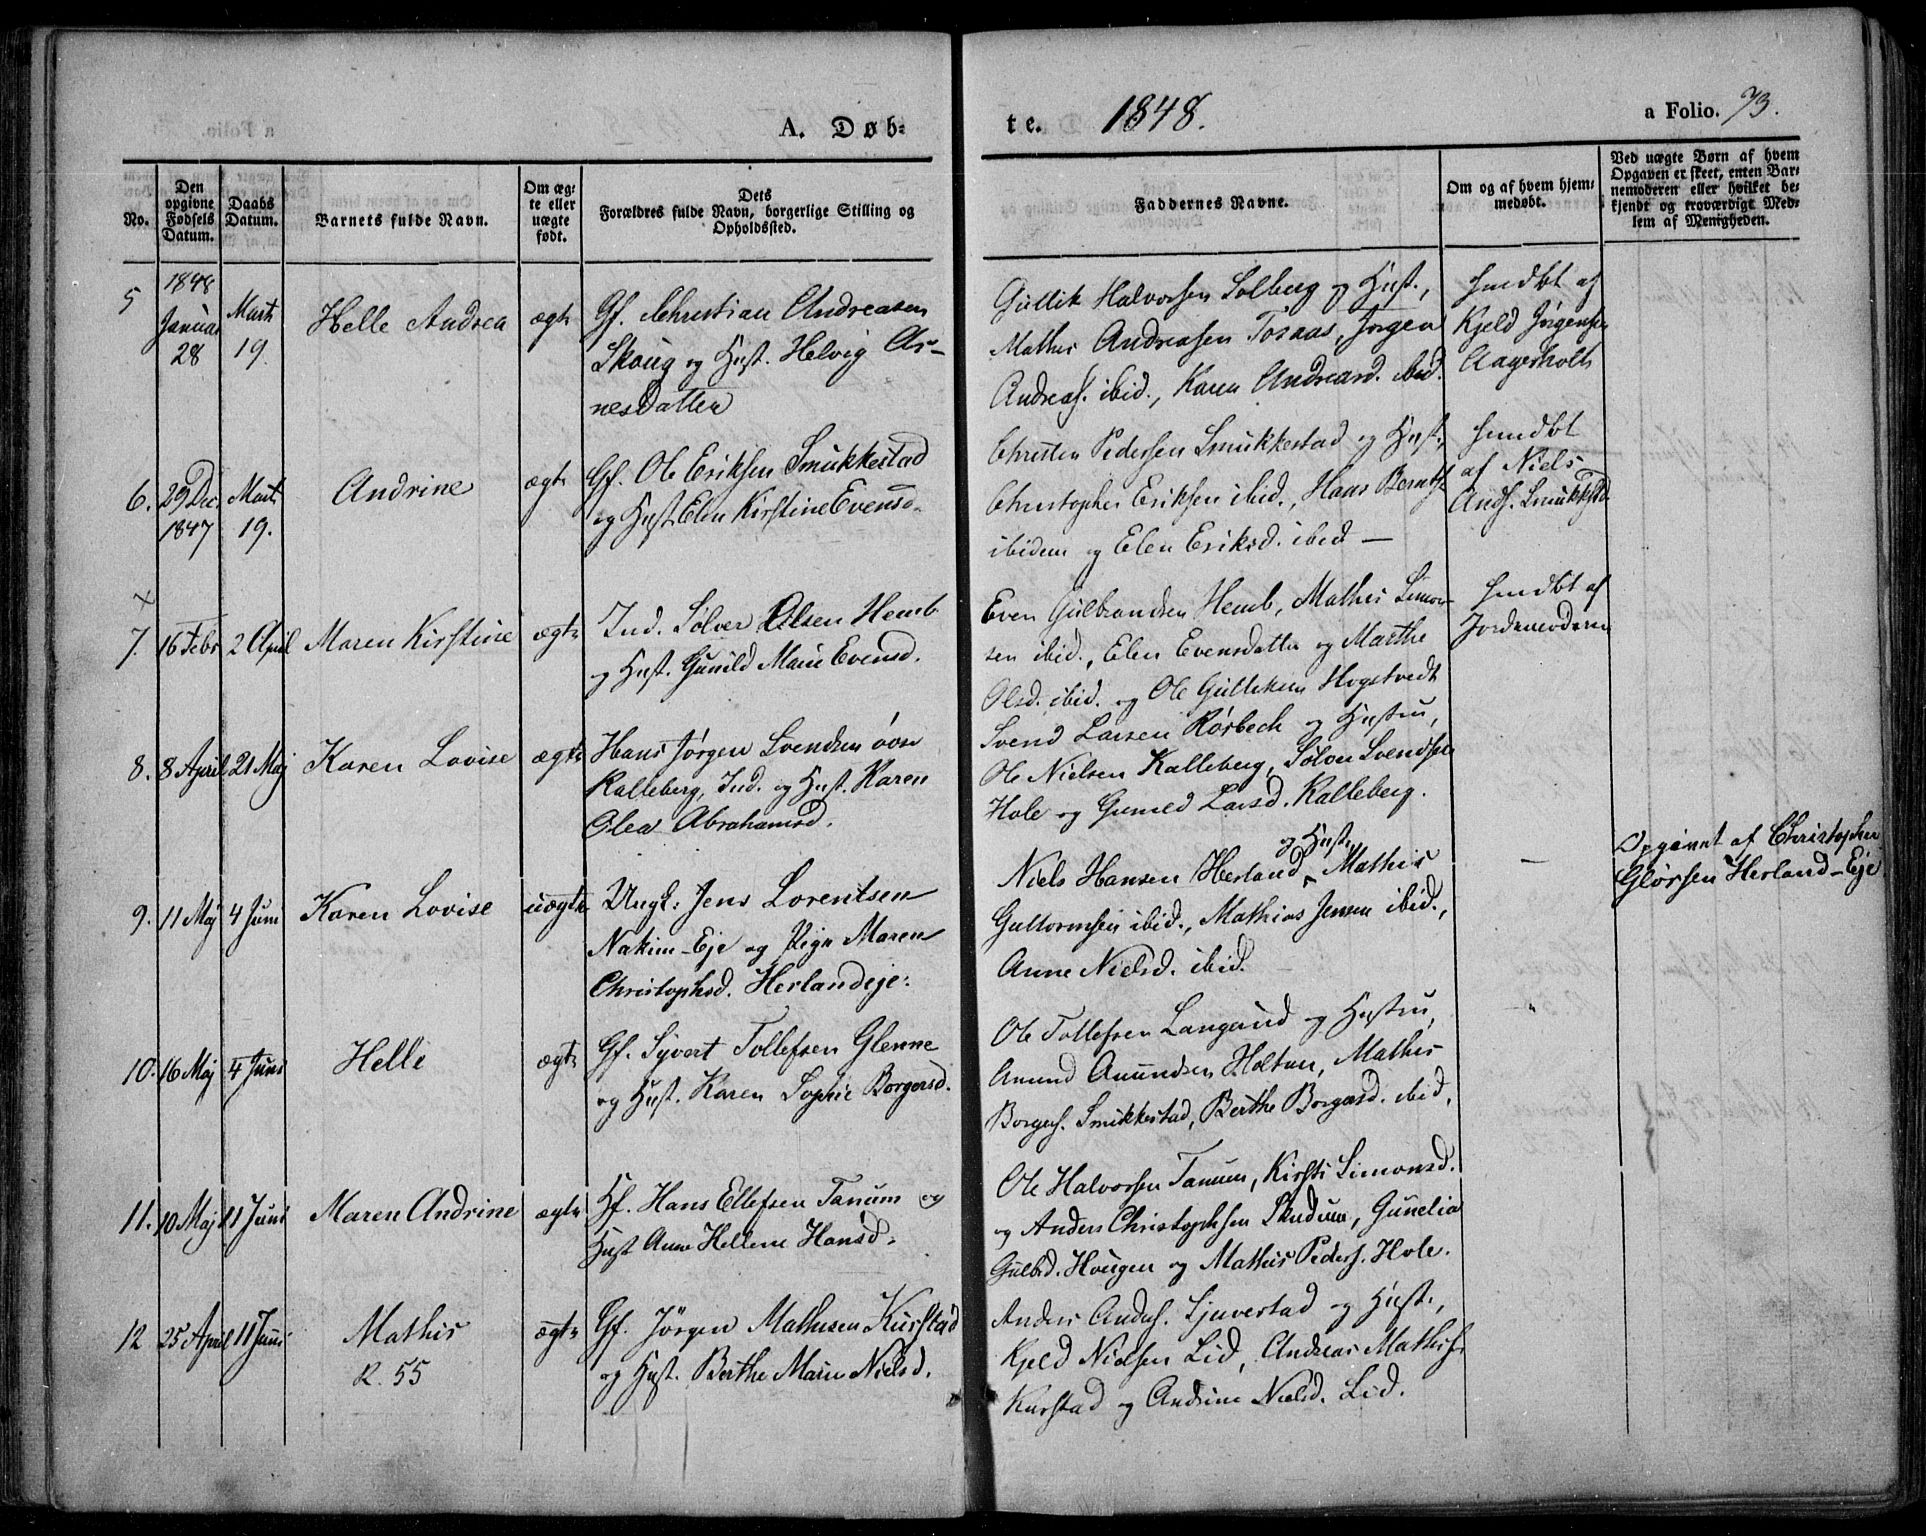 A. Døb-
te. 1848.
a Folio. 73.
No.
Den opgivne Fødsels Datum.
Daabs Datum.
Barnets fulde Navn.
Om ægte eller uægte født.
Dets Forældres fulde Navn, borgerlige Stilling og Opholdssted.
Faddernes Navne.
Om og af hvem hjemmedøbt.
Ved uægte Børn af hvem Opgaven er skeet, enten Barnemoderen eller hvilket bekjendt og troværdigt Medlem af Menigheden.
5
1848 Januar 28
Marts 19.
Helle Andrea
ægte
Gf. Christian Andreasen
Skoug og Hust. Helvig Ar-
nesdatter
Gullik Halvorsen Solberg og Hust.,
Mathis Andreasen Toraas, Jørgen
Andreas. ibid., Karen Andreasd. ibid.
hmdbt af
Kjeld Jørgensen
Aagerholt
6.
29 Dec. 1847
Mart. 19.
Andrine
ægte
Gf. Ole Eriksen Smukkestad
og Hust Elen Kirstine Evensd.
Christen Pedersen Smukkestad og Hust.,
Christopher Eriksen ibid., Hans Bernts.
ibidem og Elen Eriksd. ibid —
hmdbt
af Niels
Ands. Smukkstd
7.
16 Febr
2 April
Maren Kirstine
ægte
Ind. Sølver Olsen Hemb
og Hust. Gunild Marie Evensd.
Even Gulbrandsen Hemb, Mathis Simon-
sen ibid., Elen Evensdatter og Marthe
Olsd. ibid. og Ole Gulliksen Hogstvedt
hmdbt af
Jordemoderen
8.
8 April
21 Maj
Karen Lovise
ægte
Hans Jørgen Svendsen øvre
Kalleberg, Ind. og Hust. Karen
Olea Abrahamsd.
Svend Larsen Rørbeck og Hustru,
Ole Nielsen Kalleberg, Sølver Svendsen
Hole og Gunild Larsd. Kalleberg.
9.
11 Maj
4 Juni
Karen Lovise
uægte
Ungk: Jens Lorentsen
Nakim-Eje og Pige Maren
Christophsd. Herlandeje:
og Hust.
Niels Hansen Herland, Mathis
Guttormsen ibid., Mathias Jensen ibid.,
Anne Nielsd. ibid.
—
Opgivet af Christopher
Glørsen Herland-Eje
10.
16 Maj
4 Juni
Helle
ægte
Gf. Syvert Tollefsen Glenne
og Hust. Karen Sophie Borgersd.
Ole Tollefsen Langaard og Hustru,
Amund Amundsen Holtan, Mathis
Borgers. Smukkestad, Berthe Borgersd. ibid.
"
11.
10 Maj
11 Juni
Maren Andrine
ægte
Hf. Hans Ellefsen Tanum og
Hust Anne Hellene Hansd.
Ole Halvorsen Tanum, Kirsti Simonsd.
og Anders Christophsen Skudum, Gunelia
Gulbd. Hougen og Mathis Peders. Hole.
12
25 April
11 Juni
Mathis
R. 55
ægte
Gf. Jörgen Mathisen Kurstad
og Hust. Berthe Marie Nielsd.
Anders Anders. Sjuvestad og Hust.,
Kjeld Nielsen Lid, Andreas Mathis.
Kurstad og Andrine Nielsd. Lid.